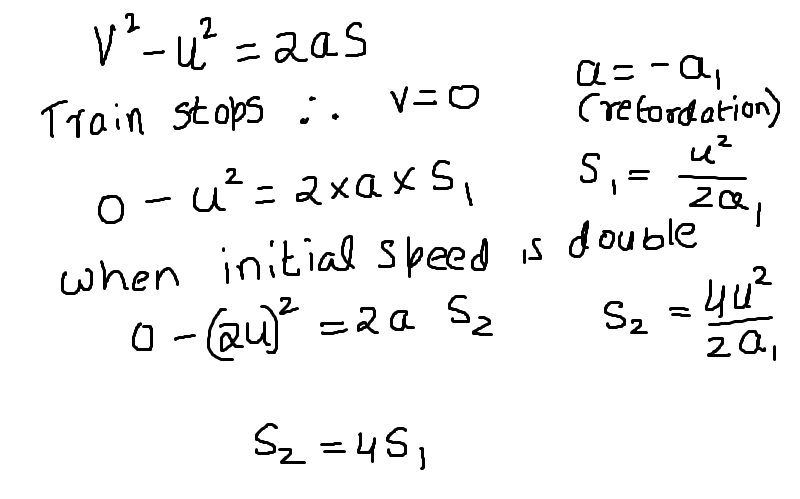 V² - u² = 2as
a = -a₁
Train stops ∴ v = 0
(retordation)
0 - u² = 2 × a × S₁
S₁ = u² / 2a₁
when initial speed is double
0 - (2u)² = 2a S₂
S₂ = 4u² / 2a₁
S₂ = 4S₁